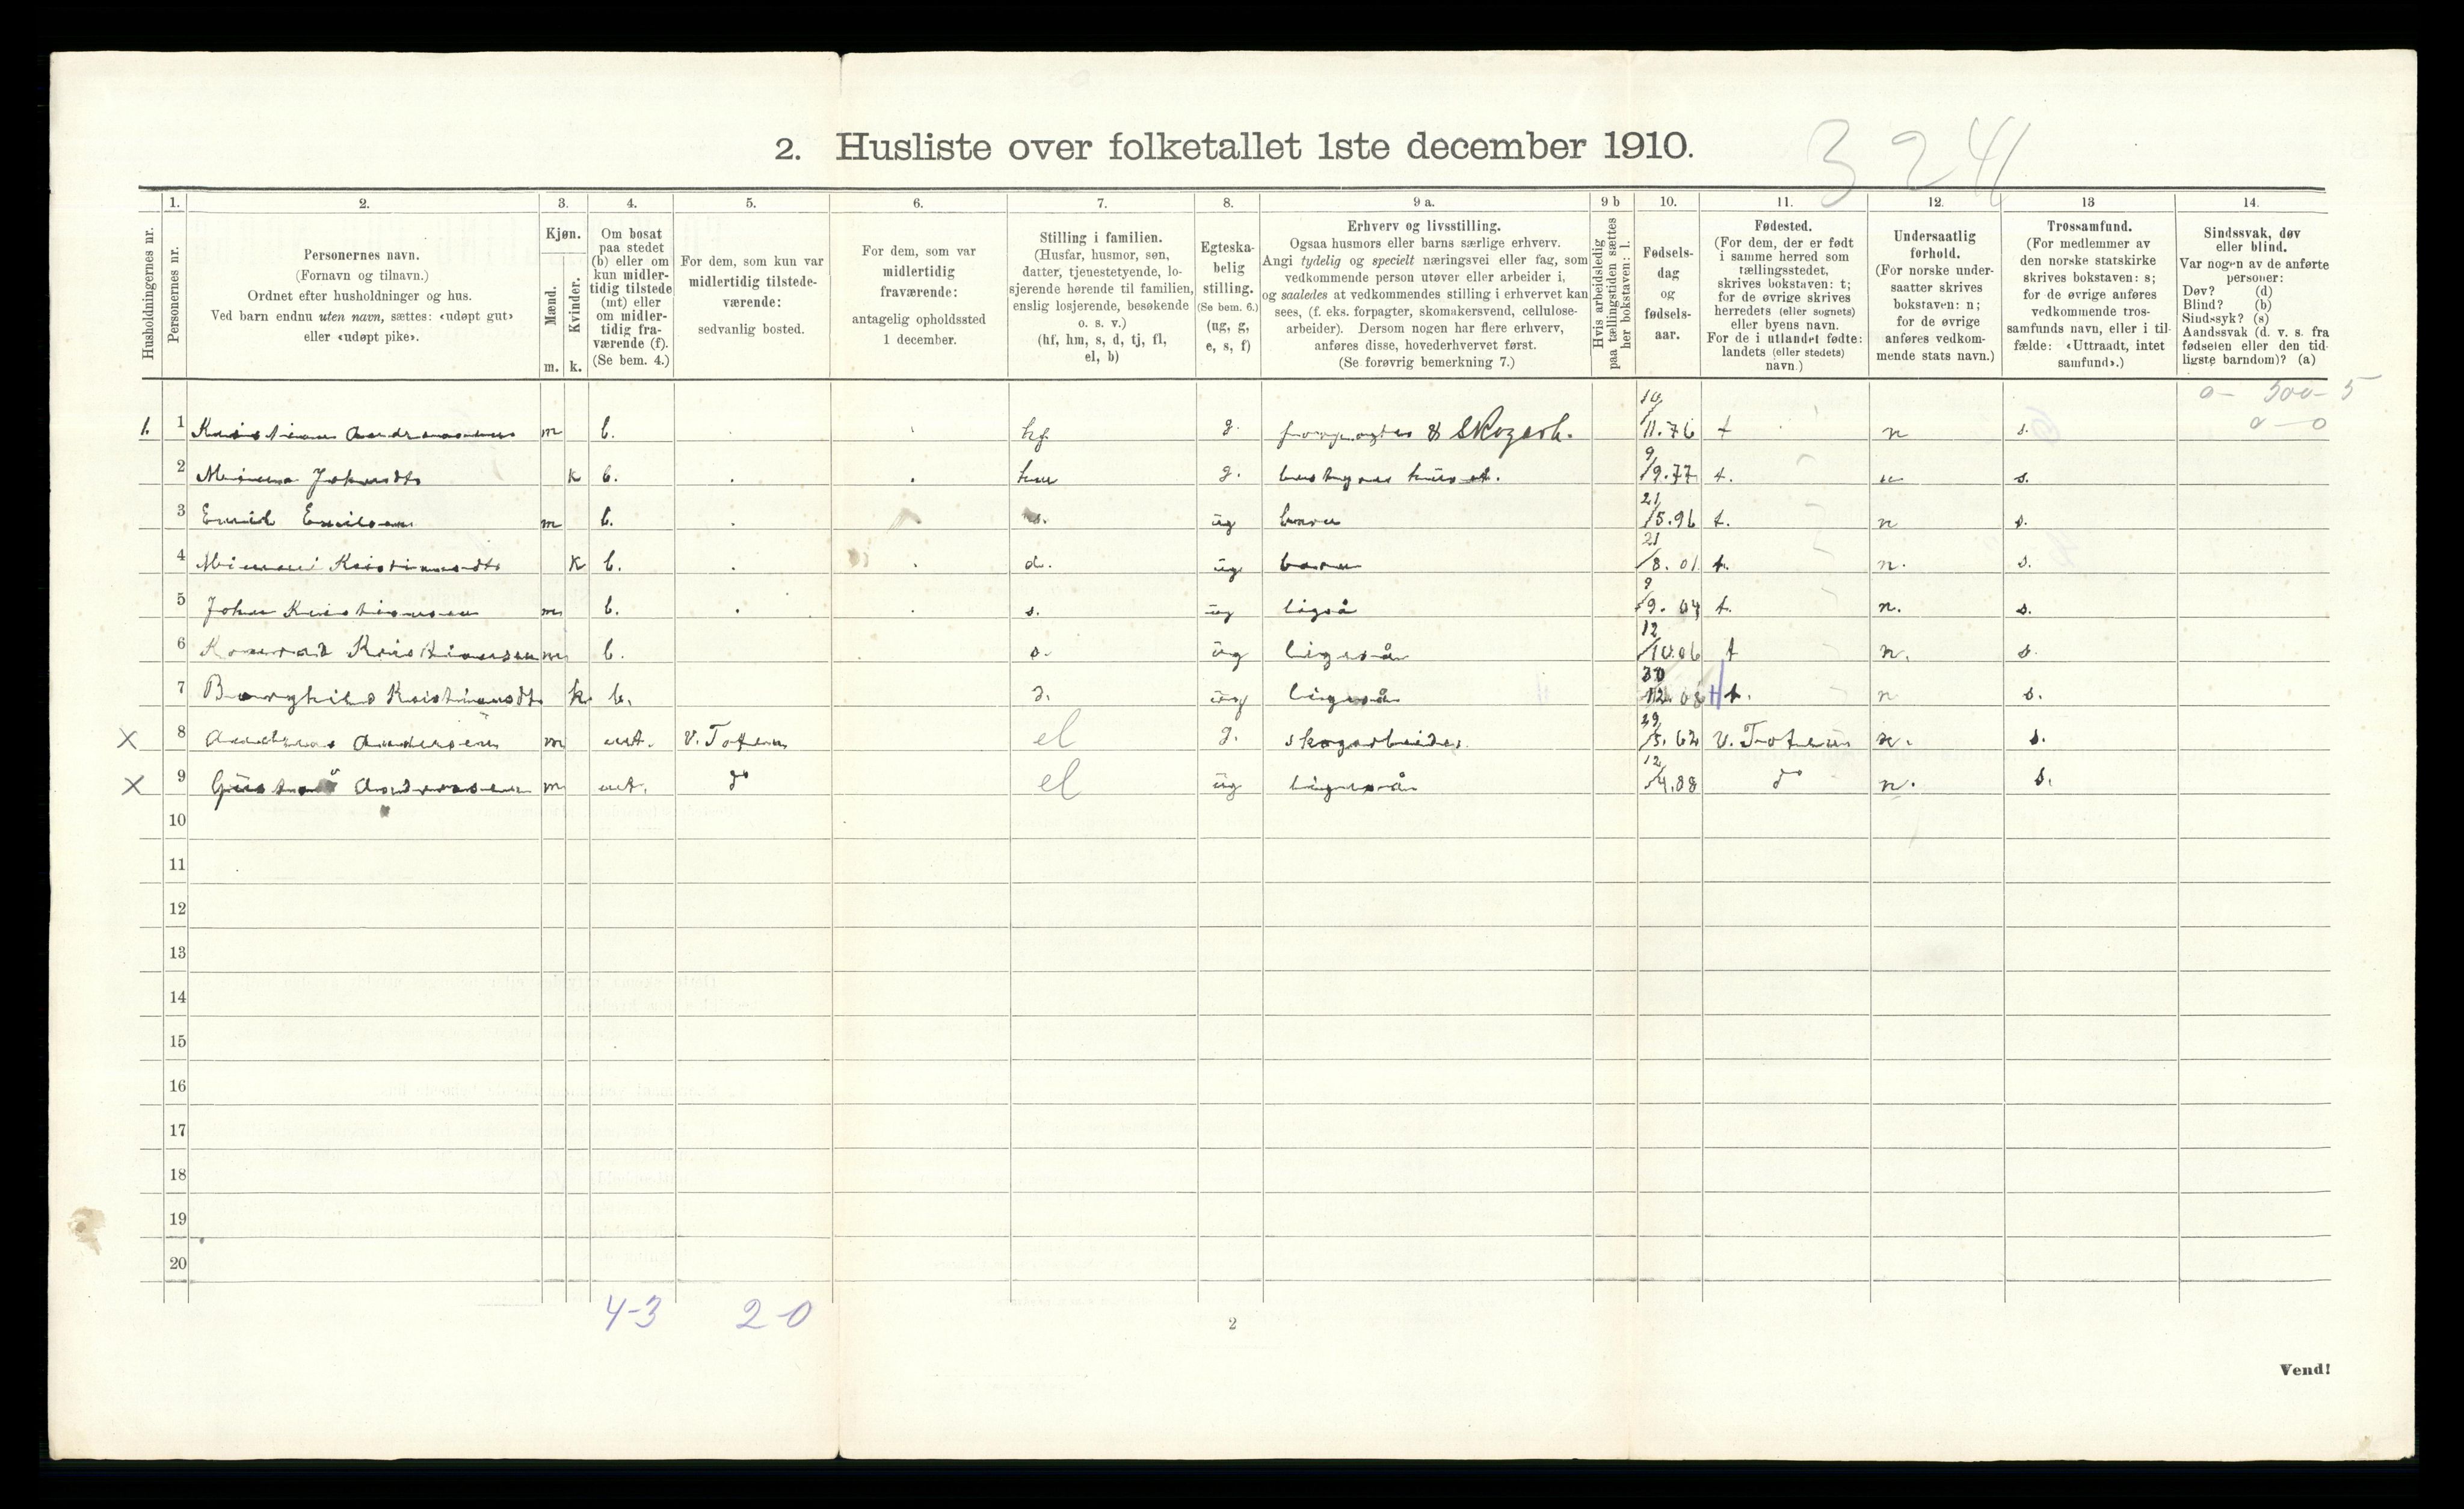 2. Husliste over folketallet 1ste december 1910.
324
Husholdningernes nr.
1. Personernes nr.
2. Personernes navn.
(Fornavn og tilnavn.)
Ordnet efter husholdninger og hus.
Ved barn endnu uten navn, sættes: «udøpt gut»
eller «udøpt pike».
3. Kjøn.
Mænd. m.
Kvinder. k.
4. Om bosat
paa stedet
(b) eller om
kun midler-
tidig tilstede
(mt) eller
om midler-
tidig fra-
værende (f).
(Se bem. 4.)
5. For dem, som kun var
midlertidig tilstede-
værende:
sedvanlig bosted.
6. For dem, som var
midlertidig
fraværende:
antagelig opholdssted
1 december.
7. Stilling i familien.
(Husfar, husmor, søn,
datter, tjenestetyende, lo-
sjerende hørende til familien,
enslig losjerende, besøkende
o. s. v.)
(hf, hm, s, d, tj, fl,
el, b)
8. Egteska-
belig
stilling.
(Se bem. 6.)
(ug, g,
e, s, f)
9 a. Erhverv og livsstilling.
Ogsaa husmors eller barns særlige erhverv.
Angi tydelig og specielt næringsvei eller fag, som
vedkommende person utøver eller arbeider i,
og saaledes at vedkommendes stilling i erhvervet kan
sees, (f. eks. forpagter, skomakersvend, cellulose-
arbeider). Dersom nogen har flere erhverv,
anføres disse, hovederhvervet først.
(Se forøvrig bemerkning 7.)
9 b Hvis arbeidsledig
paa tællingstiden sættes
her bokstaven: l.
10. Fødsels-
dag
og
fødsels-
aar.
11. Fødested.
(For dem, der er født
i samme herred som
tællingsstedet,
skrives bokstaven: t;
for de øvrige skrives
herredets (eller sognets)
eller byens navn.
For de i utlandet fødte:
landets (eller stedets)
navn.)
12. Undersaatlig
forhold.
(For norske under-
saatter skrives
bokstaven: n;
for de øvrige
anføres vedkom-
mende stats navn.)
13 Trossamfund.
(For medlemmer av
den norske statskirke
skrives bokstaven: s;
for de øvrige anføres
vedkommende tros-
samfunds navn, eller i til-
fælde: «Uttraadt, intet
samfund».)
14. Sindssvak, døv
eller blind.
Var nogen av de anførte
personer:
Døv? (d)
Blind? (b)
Sindssyk? (s)
Aandssvak (d. v. s. fra
fødselen eller den tid-
ligste barndom)? (a)
0 - 500 - 5
0 - 0
1. 1 Kristian Andreassen m b. hf g. forpagter & Skogarb. 10/11.76 t n s.
2 Minna Johansdtr k b. hm g. bestyrer huset. 9/9.77 t. n s.
3 Emil Emilsen m b. s. ug barn 21/5.96 t. n s.
4 Kristiansdtr k b. d. ug barn 21/8.01 t. n. s.
5 Johan Kristiansen m b. s. ug ligså /9.04 t. n. s.
6 Konrad Kristiansen m b. s. ug ligeså 12/10.06 t n. s.
7 Borghild Kristiansdtr k b. d. ug ligeså 30/12.08 t. n s.
X 8 Andreas Andersen m mt. V. Toten el g. skogarbeider 29/5.62 V. Toten n. s.
X 9 Gustav Andreassen m mt. do el ug ligeså 12/4.88 do n. s.
10
11
12
13
14
15
16
17
18
19
20
4-3 2-0
2
Vend!